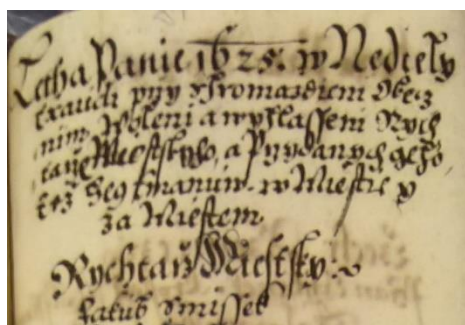 Letha Panie 1625. w Nediely
Exaudi przy Shromazdieni Obecz
nim, Woleni a wyhlasseni Rych
tarze Miestskyho, a Przydanych geho
též Heytmanuw w Miestie y
za Miestem.
Rychtarz Miestsky:
Jakub Smissek